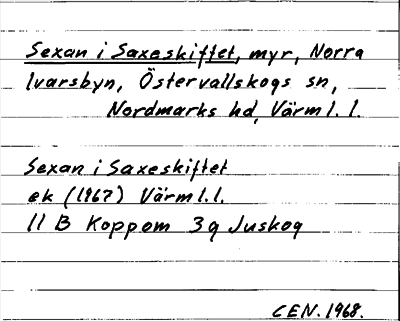 Sexan i Saxeskiftet, myr, Norra
Ivarsbyn, Östervallskogs sn,
Nordmarks hd, Värml. l.
Sexan i Saxeskiftet
ek (1967) Värml. l.
11 B Koppom 3 g Juskog
CEN. 1968.